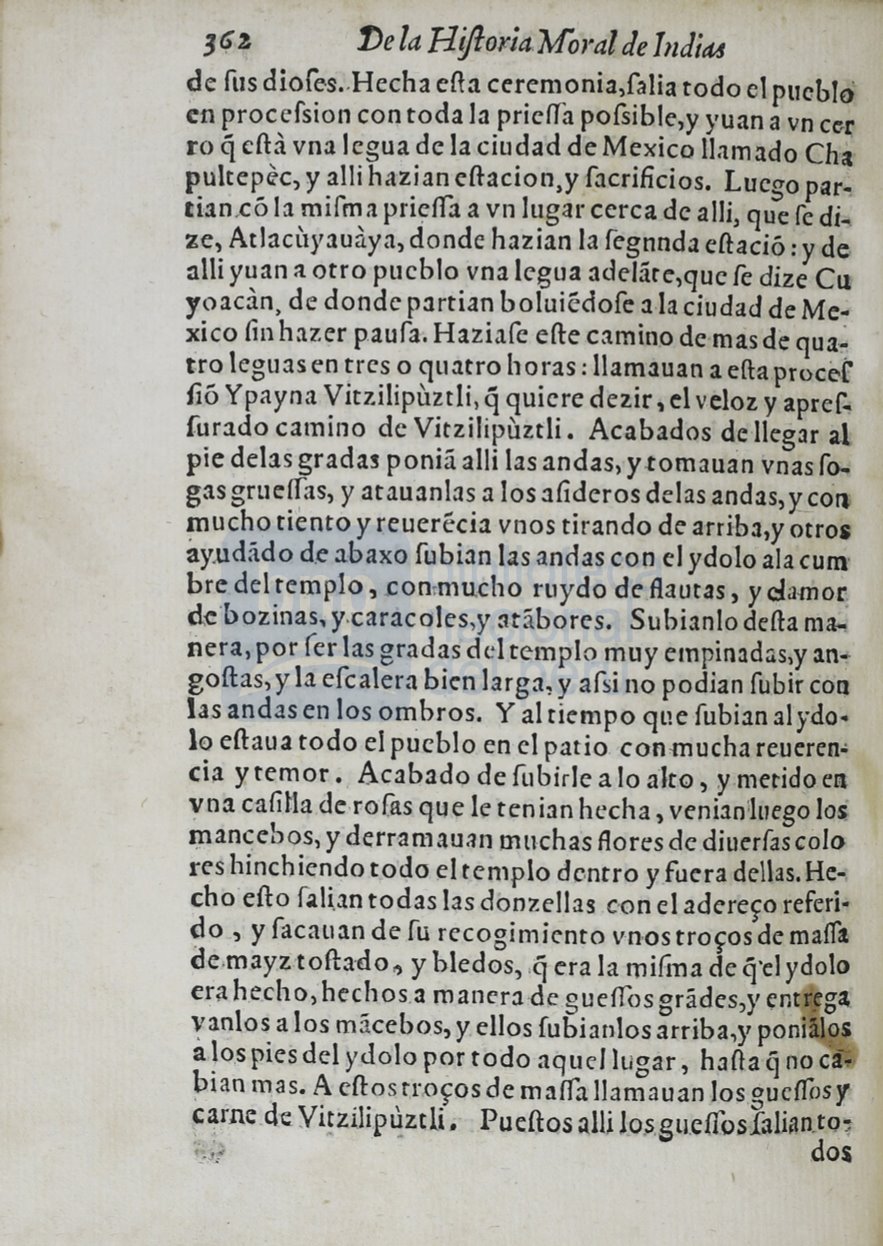 362 De la Hiſtoria Moral de Indias
de ſus dioſes. Hecha eſta ceremonia,ſalia todo el pueblo
en proceſsion con toda la prieſſa poſsible,y yuan a vn cer
ro q̃ eſtà vna legua de la ciudad de Mexico llamado Cha
pultepèc, y alli hazian eſtacion,y ſacrificios. Luego par-
tian cõ la miſma prieſſa a vn lugar cerca de alli, que ſe di-
ze, Atlacùyauàya, donde hazian la ſegnnda eſtaciõ : y de
alli yuan a otro pueblo vna legua adelãte,que ſe dize Cu
yoacàn, de donde partian boluiẽdoſe a la ciudad de Me-
xico ſin hazer pauſa. Haziaſe eſte camino de mas de qua-
tro leguas en tres o quatro horas : llamauan a eſta proceſ
ſiõ Ypayna Vitzilipùztli, q̃ quiere dezir, el veloz y apreſ-
ſurado camino de Vitzilipùztli. Acabados de llegar al
pie delas gradas poniã alli las andas, y tomauan vnas ſo-
gas grueſſas, y atauanlas a los aſideros delas andas, y con
mucho tiento y reuerẽcia vnos tirando de arriba,y otros
ayudãdo de abaxo ſubian las andas con el ydolo ala cum
bre del templo, con mucho ruydo de flautas, y clamor
de bozinas, y caracoles,y atãbores. Subianlo deſta ma-
nera, por ſer las gradas del templo muy empinadas,y an-
goſtas, y la eſcalera bien larga, y aſsi no podian ſubir con
las andas en los ombros. Y al tiempo que ſubian al ydo-
lo eſtaua todo el pueblo en el patio con mucha reueren-
cia y temor. Acabado de ſubirle a lo alto, y metido en
vna caſilla de roſas que le tenian hecha, venian luego los
mancebos, y derramauan muchas flores de diuerſas colo
res hinchiendo todo el templo dentro y fuera dellas. He-
cho eſto ſalian todas las donzellas con el adereço referi-
do, y ſacauan de ſu recogimiento vnos troços de maſſa
de mayz toſtado, y bledos, q̃ era la miſma de q̃ el ydolo
era hecho, hechos a manera de gueſſos grãdes,y entrega
vanlos a los mãcebos, y ellos ſubianlos arriba,y poniãlos
a los pies del ydolo por todo aquel lugar, haſta q̃ no ca-
bian mas. A eſtos troços de maſſa llamauan los gueſſos y
carne de Vitzilipùztli. Pueſtos alli los gueſſos ſalian to-
dos